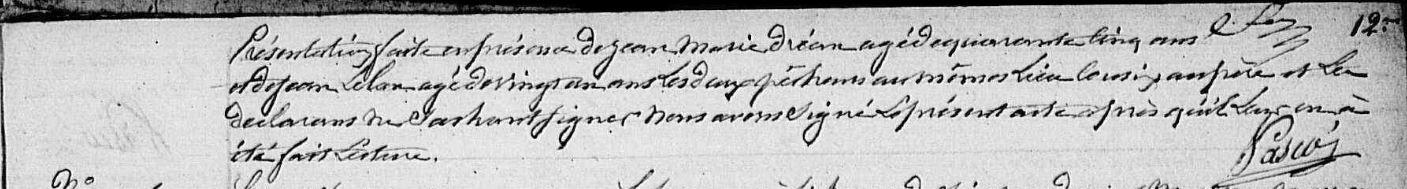 12me
Présentation faite en présence de Jean Marie Dréan agé de quarante Cinq ans
et de Jean agé de Vingt un ans les deux pêcheurs au mêmes Lieu Cousins au père et Les
declarans ne Sachant signer Nous avons Signé Le présent acte après qu'il Leur en à
été fait Lecture.
Pasco
N°